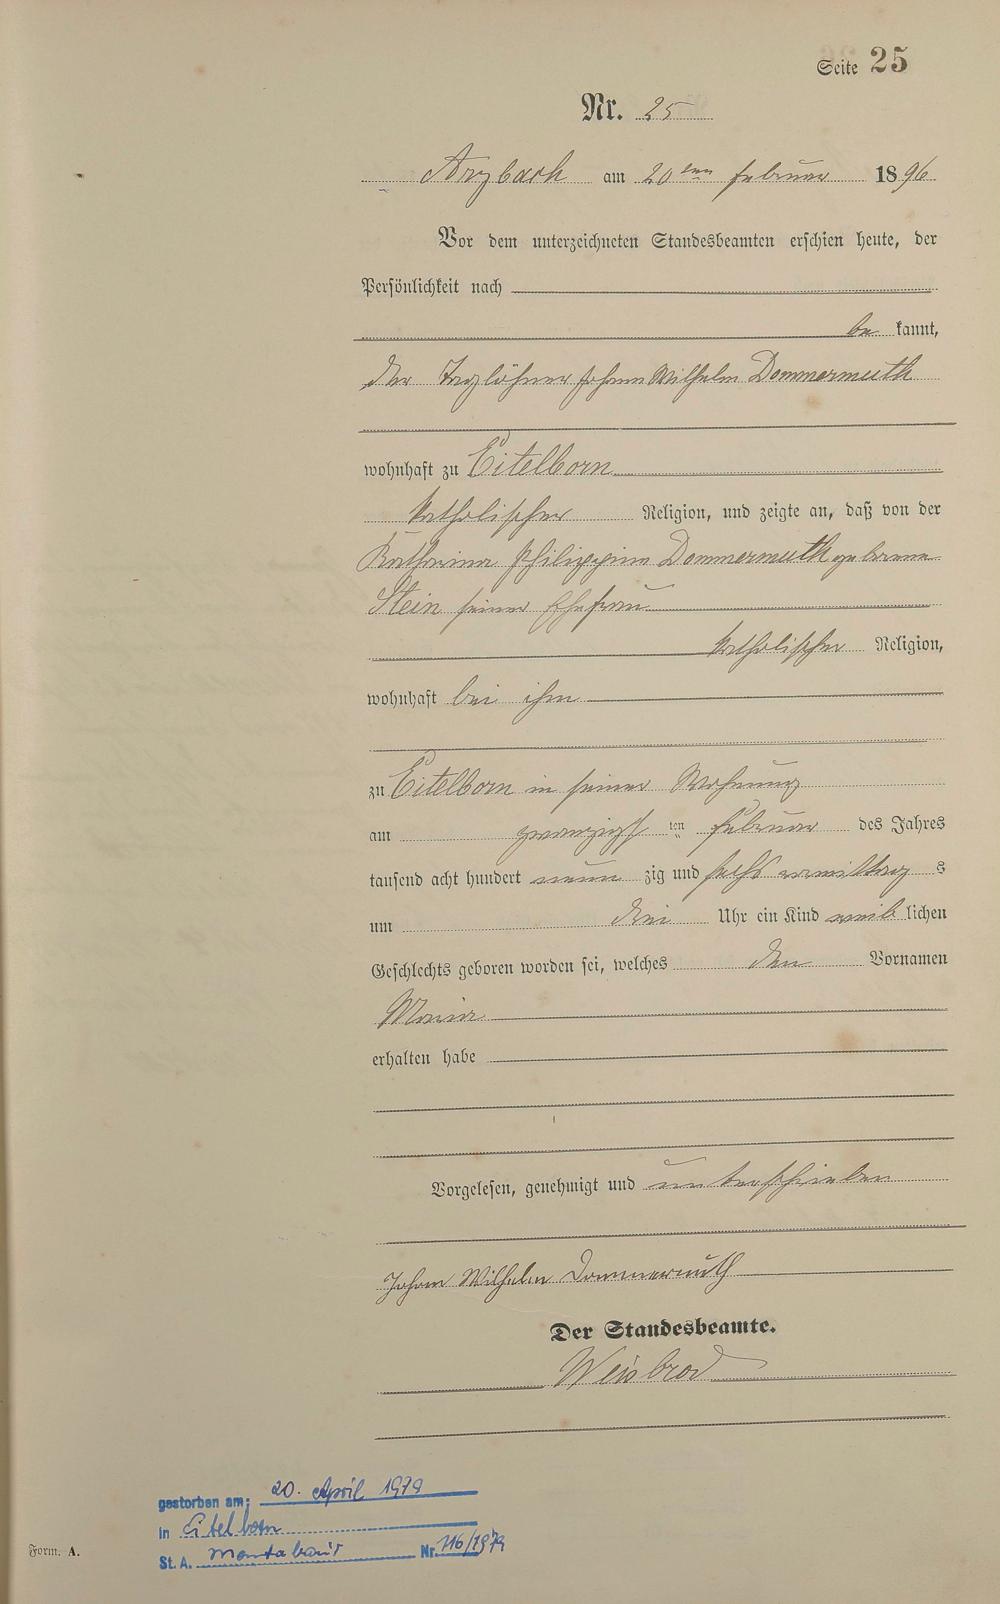 Seite 25
Nr. 25
Arzbach am 20ten Februar 1896
Vor dem unterzeichneten Standesbeamten erschien heute, der
Persönlichkeit nach
be kannt,
der Taglöhner Johann Wilhelm Dommermuth
wohnhaft zu Eitelborn
katholischer Religion, und zeigte an, daß von der
Katharina Philippina Dommermuth geborene
Stein seiner Ehefrau
katholischer Religion,
wohnhaft bei ihm
zu Eitelborn in seiner Wohnung
am zwanzigsten Februar des Jahres
tausend acht hundert neun zig und sechs vormittag s
um drei Uhr ein Kind weib lichen
Geschlechts geboren worden sei, welches den Vornamen
Maria
erhalten habe
Vorgelesen, genehmigt und unterschrieben
Johann Wilhelm Dommermuth
Der Standesbeamte.
Weisbrod
gestorben am: 20. April 1979
in Eitelborn
St. A. Montabaur Nr. 116/1979
Form. A.